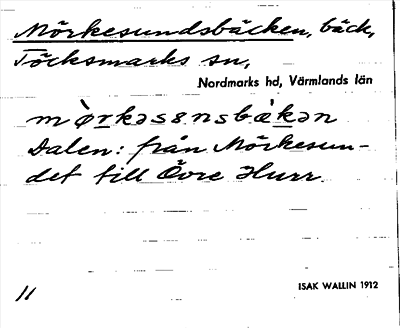 Mörkesundsbäcken, bäck,
Töcksmarks sn,
Nordmarks hd, Värmlands län
mὸ̣rkəsensbὰ̣kən
Dalen: från Mörkesun-
det till Övre Hurr.
11
ISAK WALLIN 1912